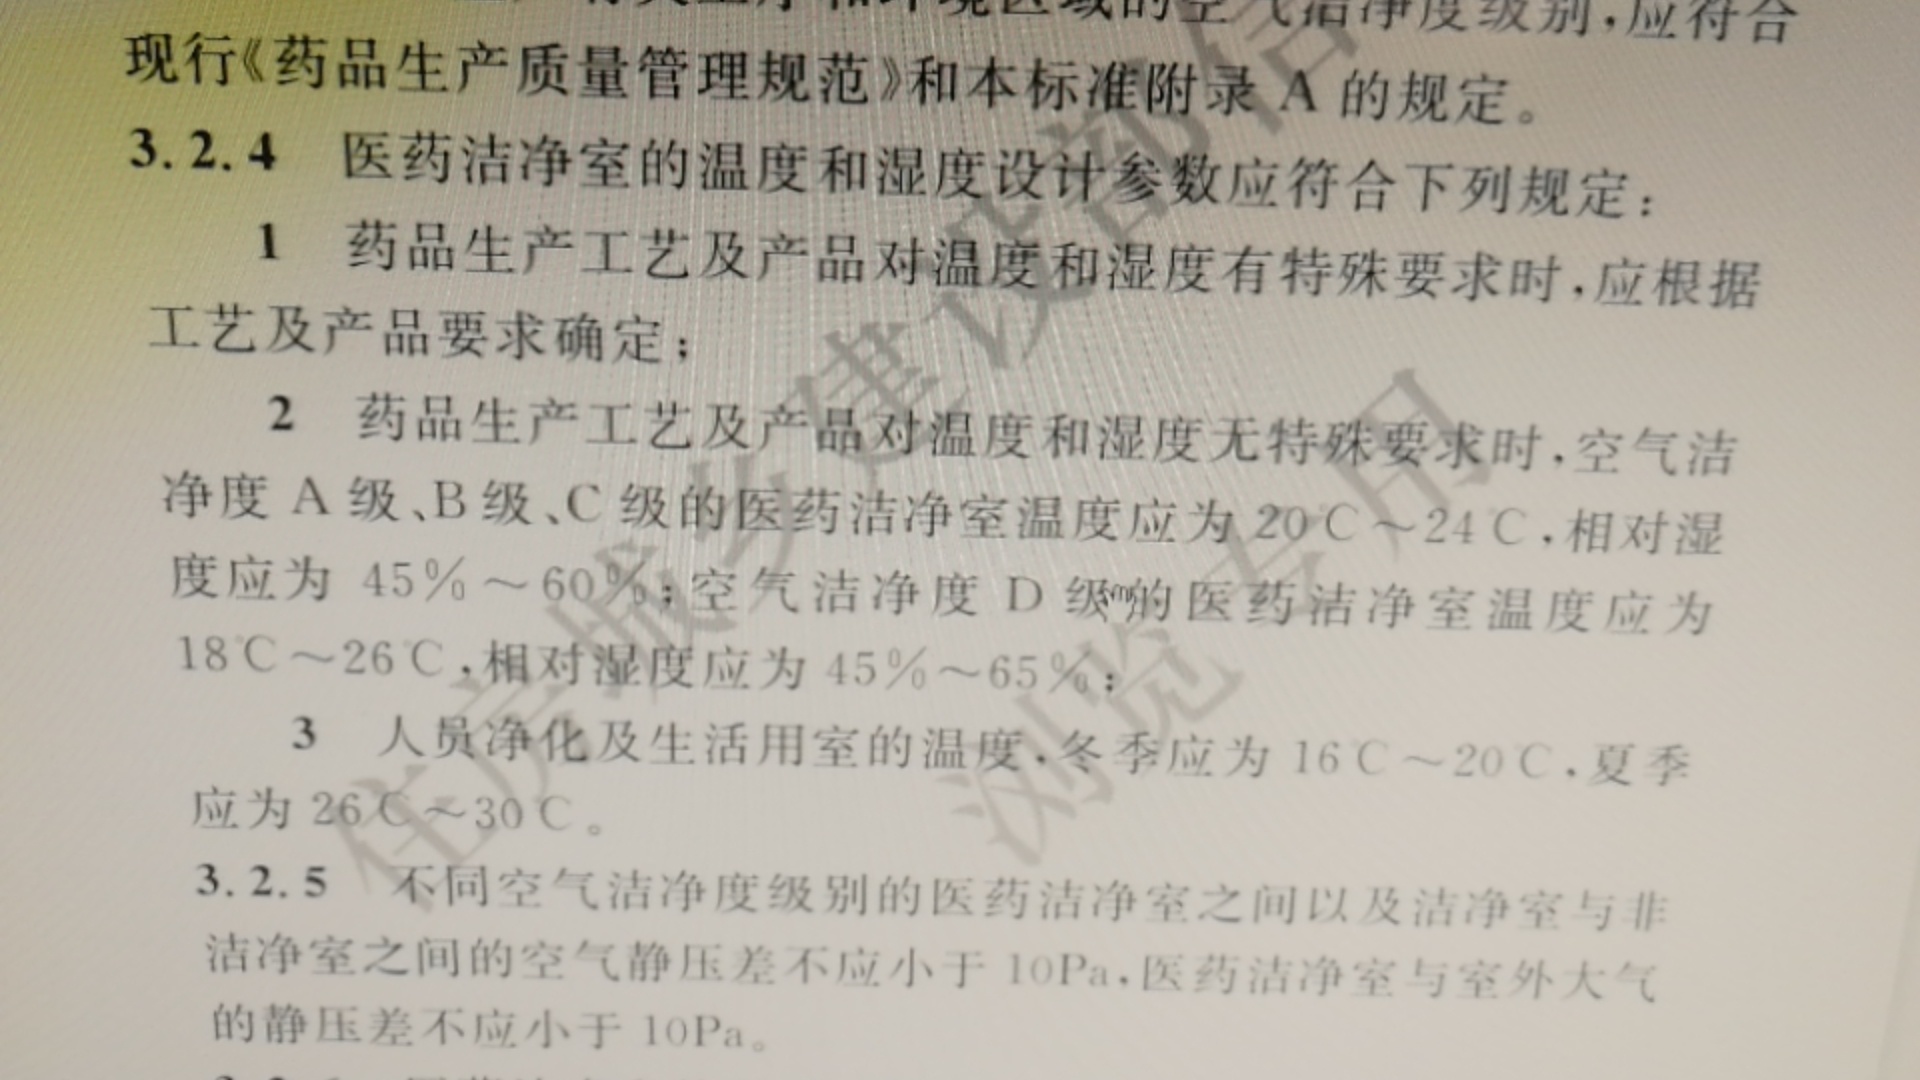 有关工序和环境区域的空气洁净度级别,应符合
现行《药品生产质量管理规范》和本标准附录 A 的规定。
3.2.4 医药洁净室的温度和湿度设计参数应符合下列规定:
1 药品生产工艺及产品对温度和湿度有特殊要求时,应根据
工艺及产品要求确定;
2 药品生产工艺及产品对温度和湿度无特殊要求时,空气洁
净度 A 级、B 级、C 级的医药洁净室温度应为 20℃～24℃,相对湿
度应为 45%～60%;空气洁净度 D 级的医药洁净室温度应为
18℃～26℃,相对湿度应为 45%～65%;
3 人员净化及生活用室的温度,冬季应为 16℃～20℃,夏季
应为 26℃～30℃。
3.2.5 不同空气洁净度级别的医药洁净室之间以及洁净室与非
洁净室之间的空气静压差不应小于 10Pa,医药洁净室与室外大气
的静压差不应小于 10Pa。
住房城乡建设部信
浏览专用